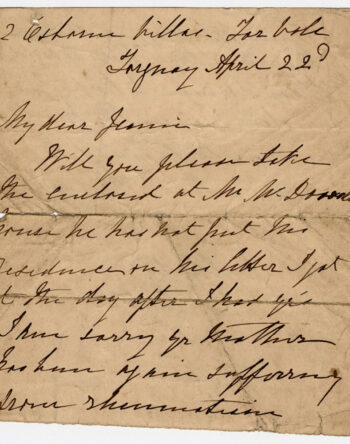 2 Osborne Villas - Tor Vale
Torquay April 22d
My dear Jennie
Will you please take
the enclosed at Mr McD
house he has not put his
residence on his letter I got
it the day after I had yrs
I am sorry yr Mother
has been again suffering
from rheumatism